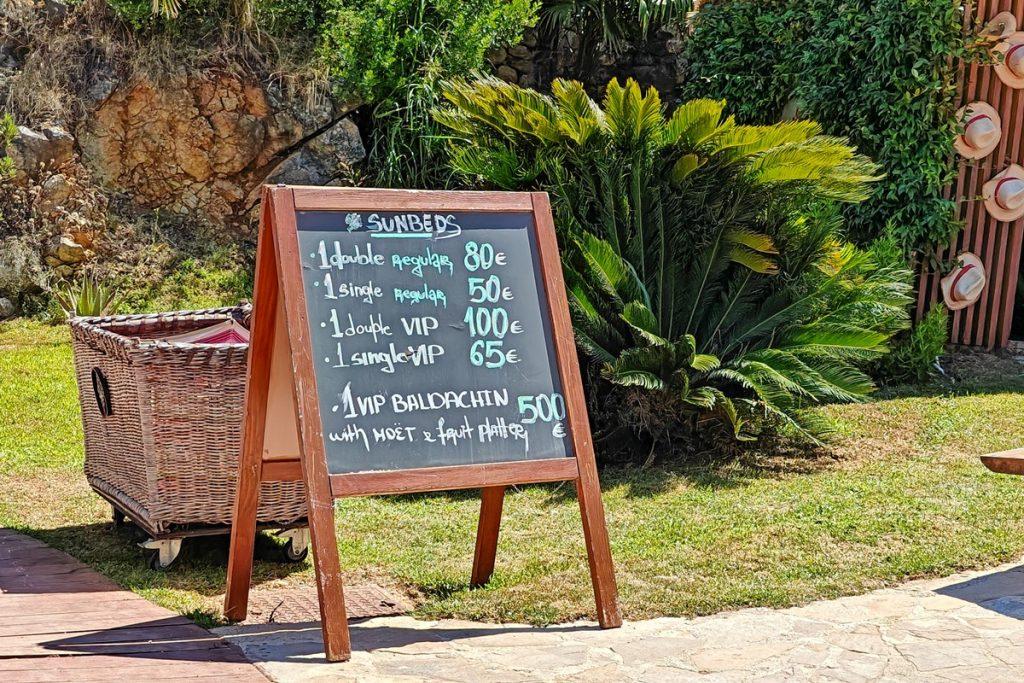 SUNBEDS
· 1 double regular, 80€
· 1 single regular 50€
· 1 double VIP 100€
· 1 single-VIP 65€
· 1 VIP BALDACHIN 500€
with MOËT & fruit platter,